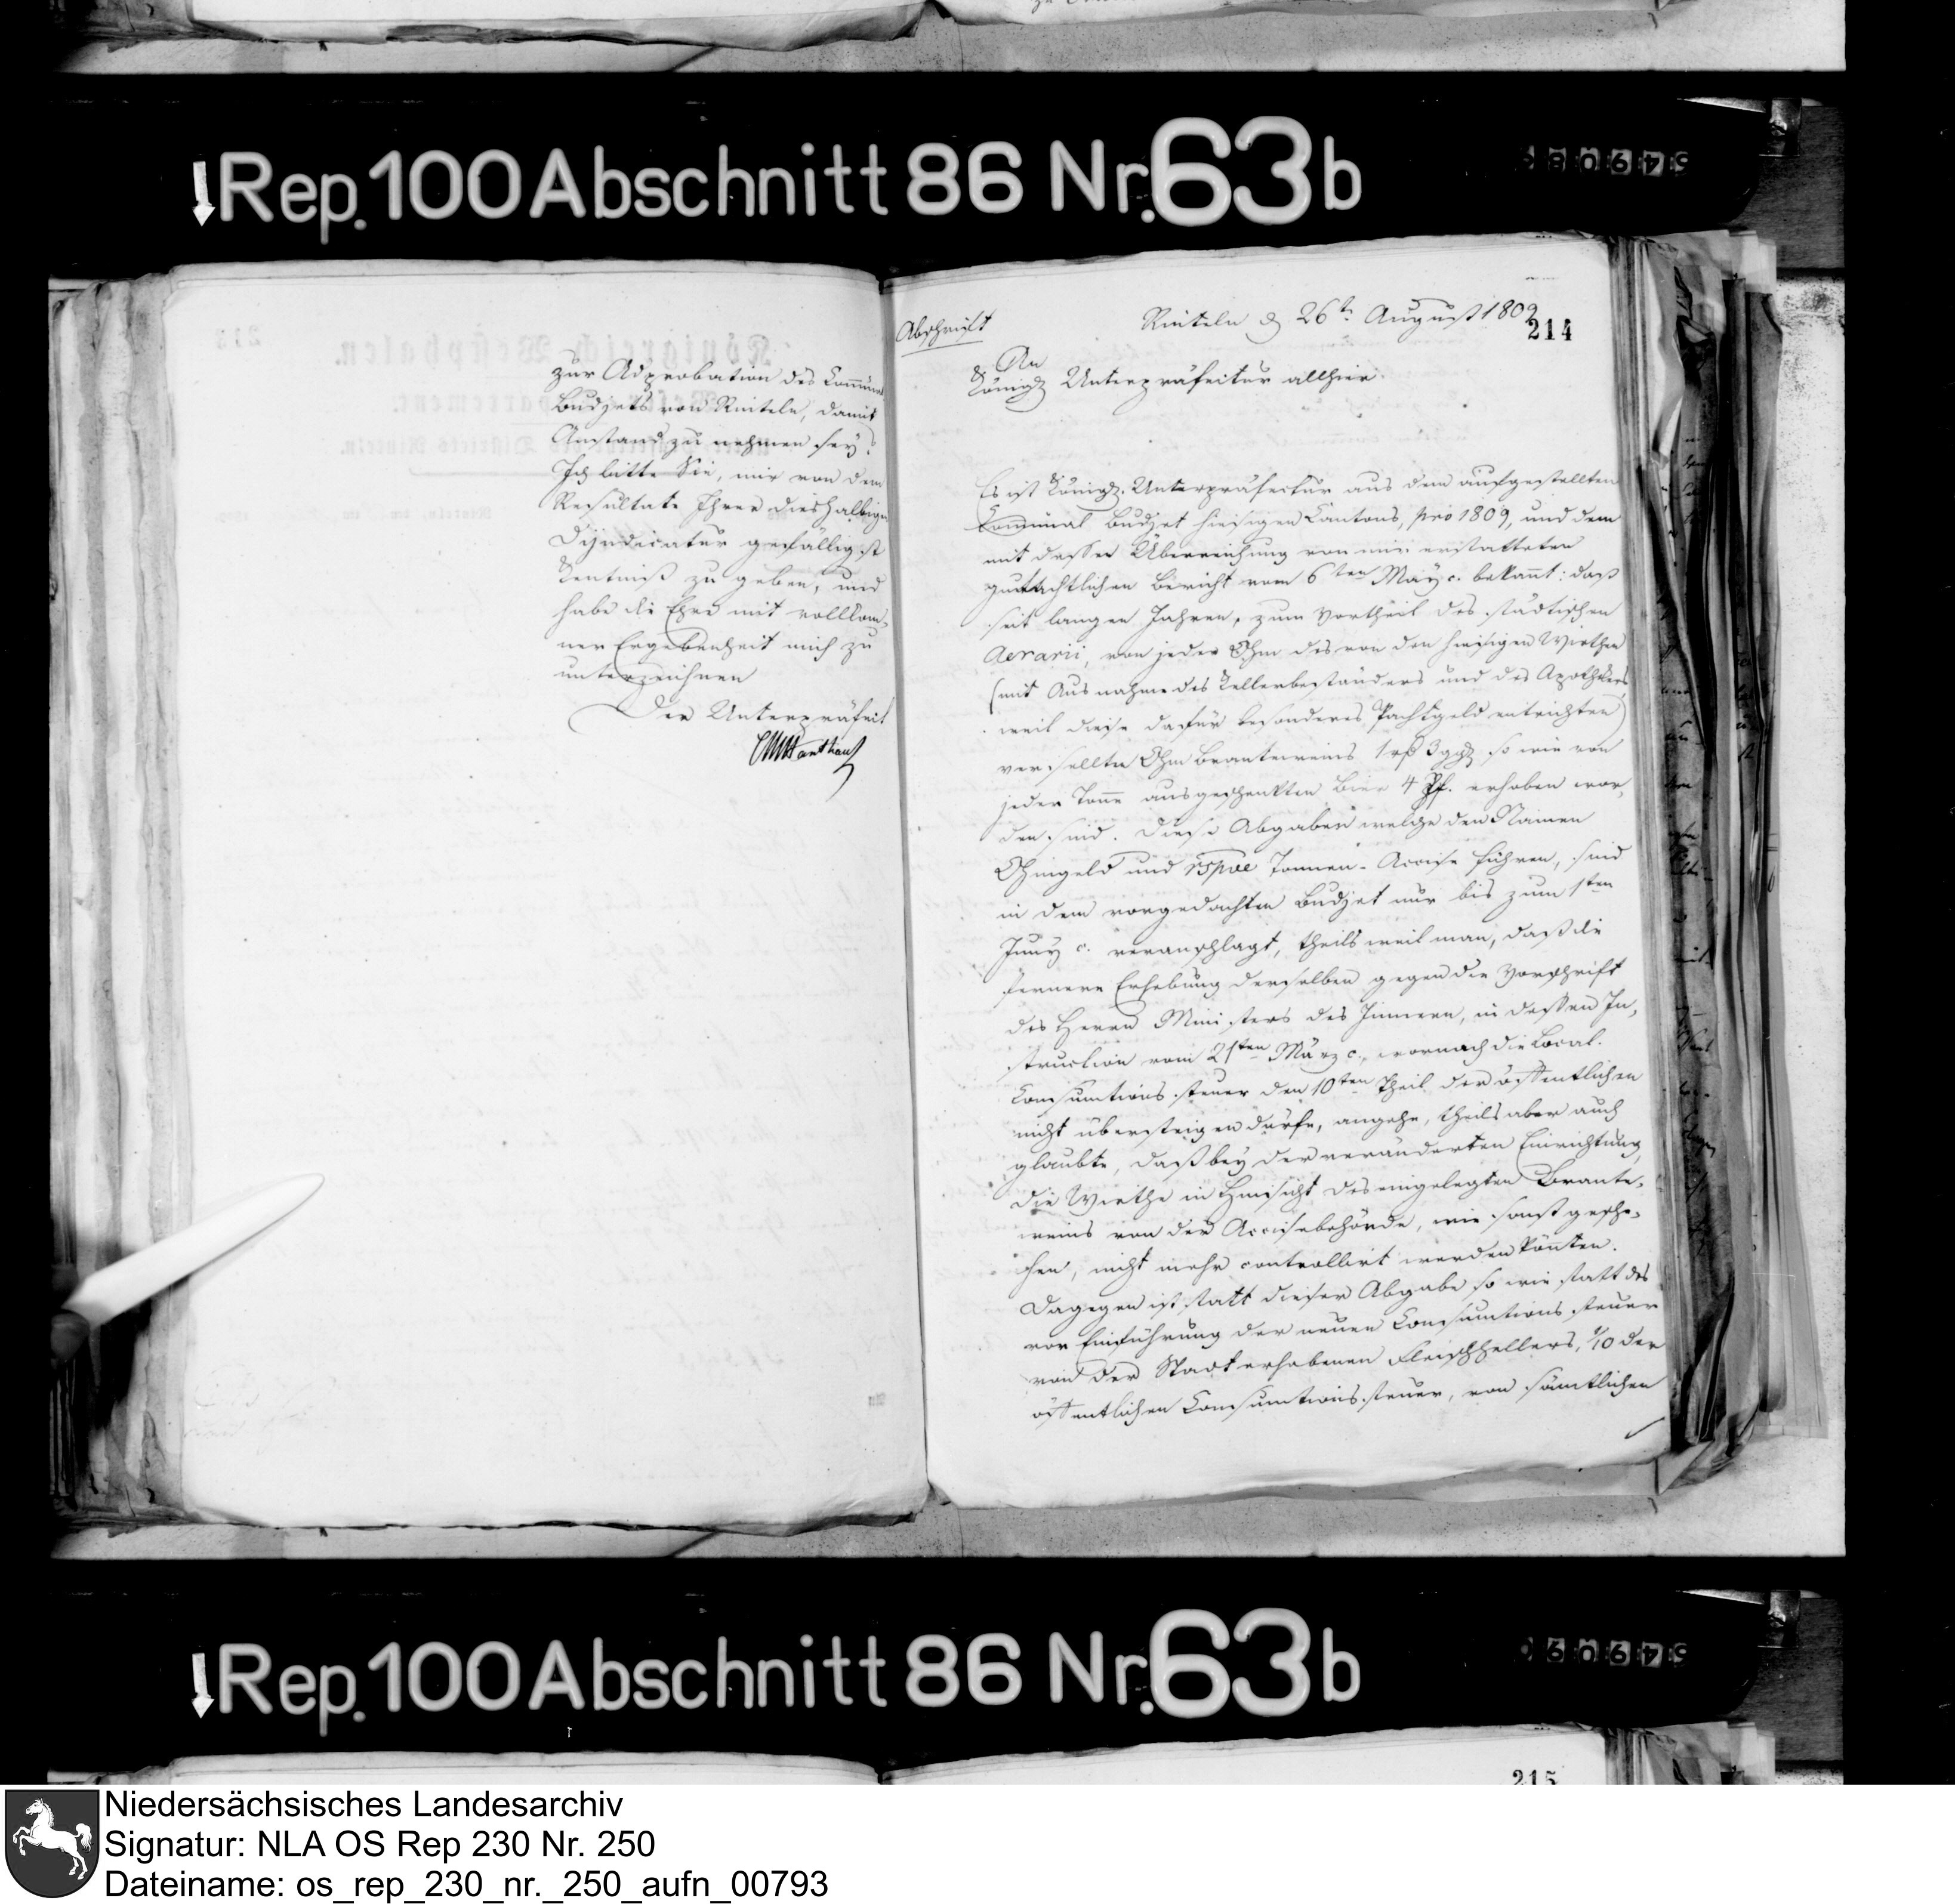 Rep. 100 Abschnitt 86 Nr. 63b
549089
zur Adprobation des Communal
Budjets von Rinteln, damit
Anstand zu nehmen sey?
Ich bitte Sie, mir von dem
Resultate Ihrer dieshalbigen
gefälligst
Kentniß zu geben, und
habe die Ehre mit vollkom„
ner Ergebenheit mich zu
unterzeichnen
Der Unterpräfect
Abschrift
Rinteln d 26tn August 1809
214
An
Königl Unterpräfectur allhier.
Es ist Königl. Unterpräfectur aus dem aufgestellten
Communal Budjet hiesigen Cantons, pro 1809, und dem
mit dessen Überreichung von mir erstatteten
gutachtlichen Bericht vom 6ten May c. bekannt: daß
seit langen Jahren, zum Vortheil des städtischen
Aerarii, von jeder Ohm des von den hiesigen Wirthen
(mit Ausnahme des Kellerbeständers und des Apothekers
weil diese dafür besonderes Pachtgeld entrichten)
versellten Ohm Branteweins 1 rß 3 ggl so wie von
jeder Tonne ausgeschenkten Bier 4 Pf. erhoben wor„
den sind. Diese Abgaben welche den Namen
Ohmgeld und rspve Tonnen-Accise führen, sind
in dem vorgedachten Budjet nur bis zum 1sten
Juny c. veranschlagt, theils weil man, daß die
fernere Erhebung derselben gegen die Vorschrift
des Herrn Ministers des Innern, in dessen In„
struction vom 21ten März c., wornach die Local-
Consumtionssteuer den 10ten Theil der öffentlichen
nicht übersteigen dürfe, angehe, theils aber auch
glaubte, daß bey der veränderten Einrichtung,
die Wirthe in Hinsicht des eingelegten Brante„
weins von der Accisebehörde, wie sonst gesche„
hen, nicht mehr controllirt werden könnten.
Dagegen ist statt dieser Abgabe so wie statt des
vor Einführung der neuen Consumtionssteuer
von der Stadt erhobenen Fleischhellers, 1/10 der
öffentlichen Consumtionssteuer, von sämtlichen
Rep. 100 Abschnitt 86 Nr. 63b
549090
215
Niedersächsisches Landesarchiv
Signatur: NLA OS Rep 230 Nr. 250
Dateiname: os_rep_230_nr._250_aufn_00793